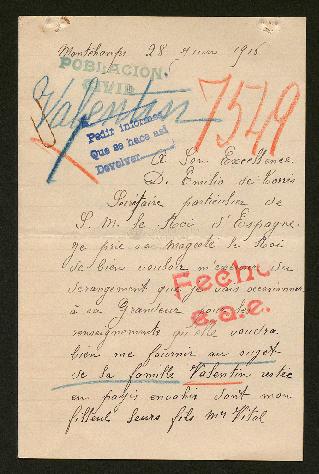 Montchamps 28 Juin 1915
POBLACION
CIVIL
Valentin
7549
Pedir informes
Que se hace asi
Devolver
A Son Excellence
D. Emilio de Torres
Secrétaire particulier de
S. M. le Roi d'Espagne
Je prie sa magesté le Roi
de bien vouloir m'excuser du
dérangement que je vais occasionner
à sa Grandeur pour les
renseignements qu'elle voudra
bien me fournir au sujet
de la famille Valentin restée
en pays envahis dont mon
filleul leurs fils Mr Vital
Fecho
a.a.e.